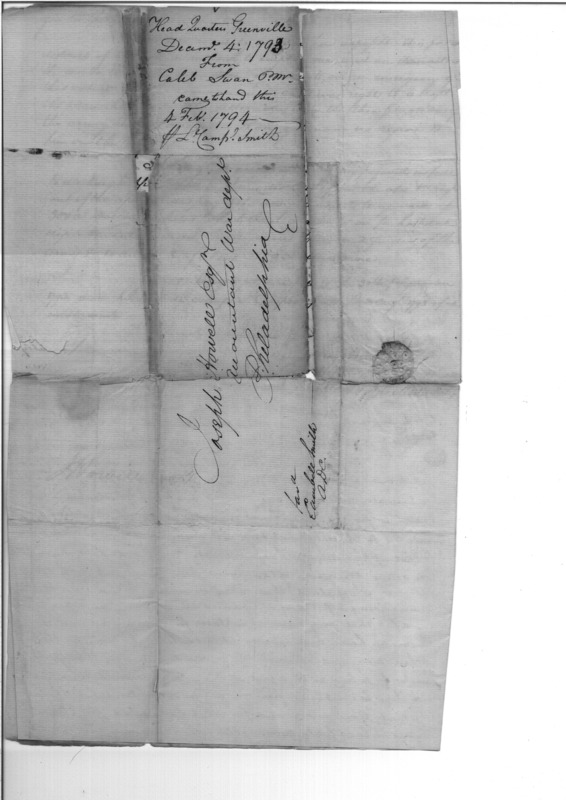 Head Quarters Greenville
Decemr. 4: 1793
From
Caleb Swan P.Mr.
came to hand this
4 Feb. 1794
Lt. Campl. Smith
Joseph Howell Esqr.
Accountant War dept.
Philadelphia
Campbell Smith
ADC.